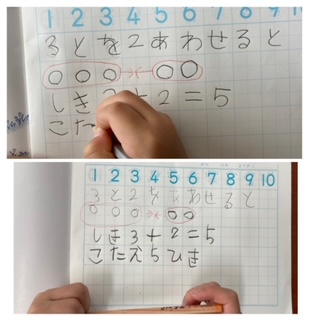 1 2 3 4 5 6 7 8 9 10
3とを2あわせると
しき3+2=5
こた
1 2 3 4 5 6 7 8 9 10
3と2をあわせると
しき3+2=5
こたえ5ひき